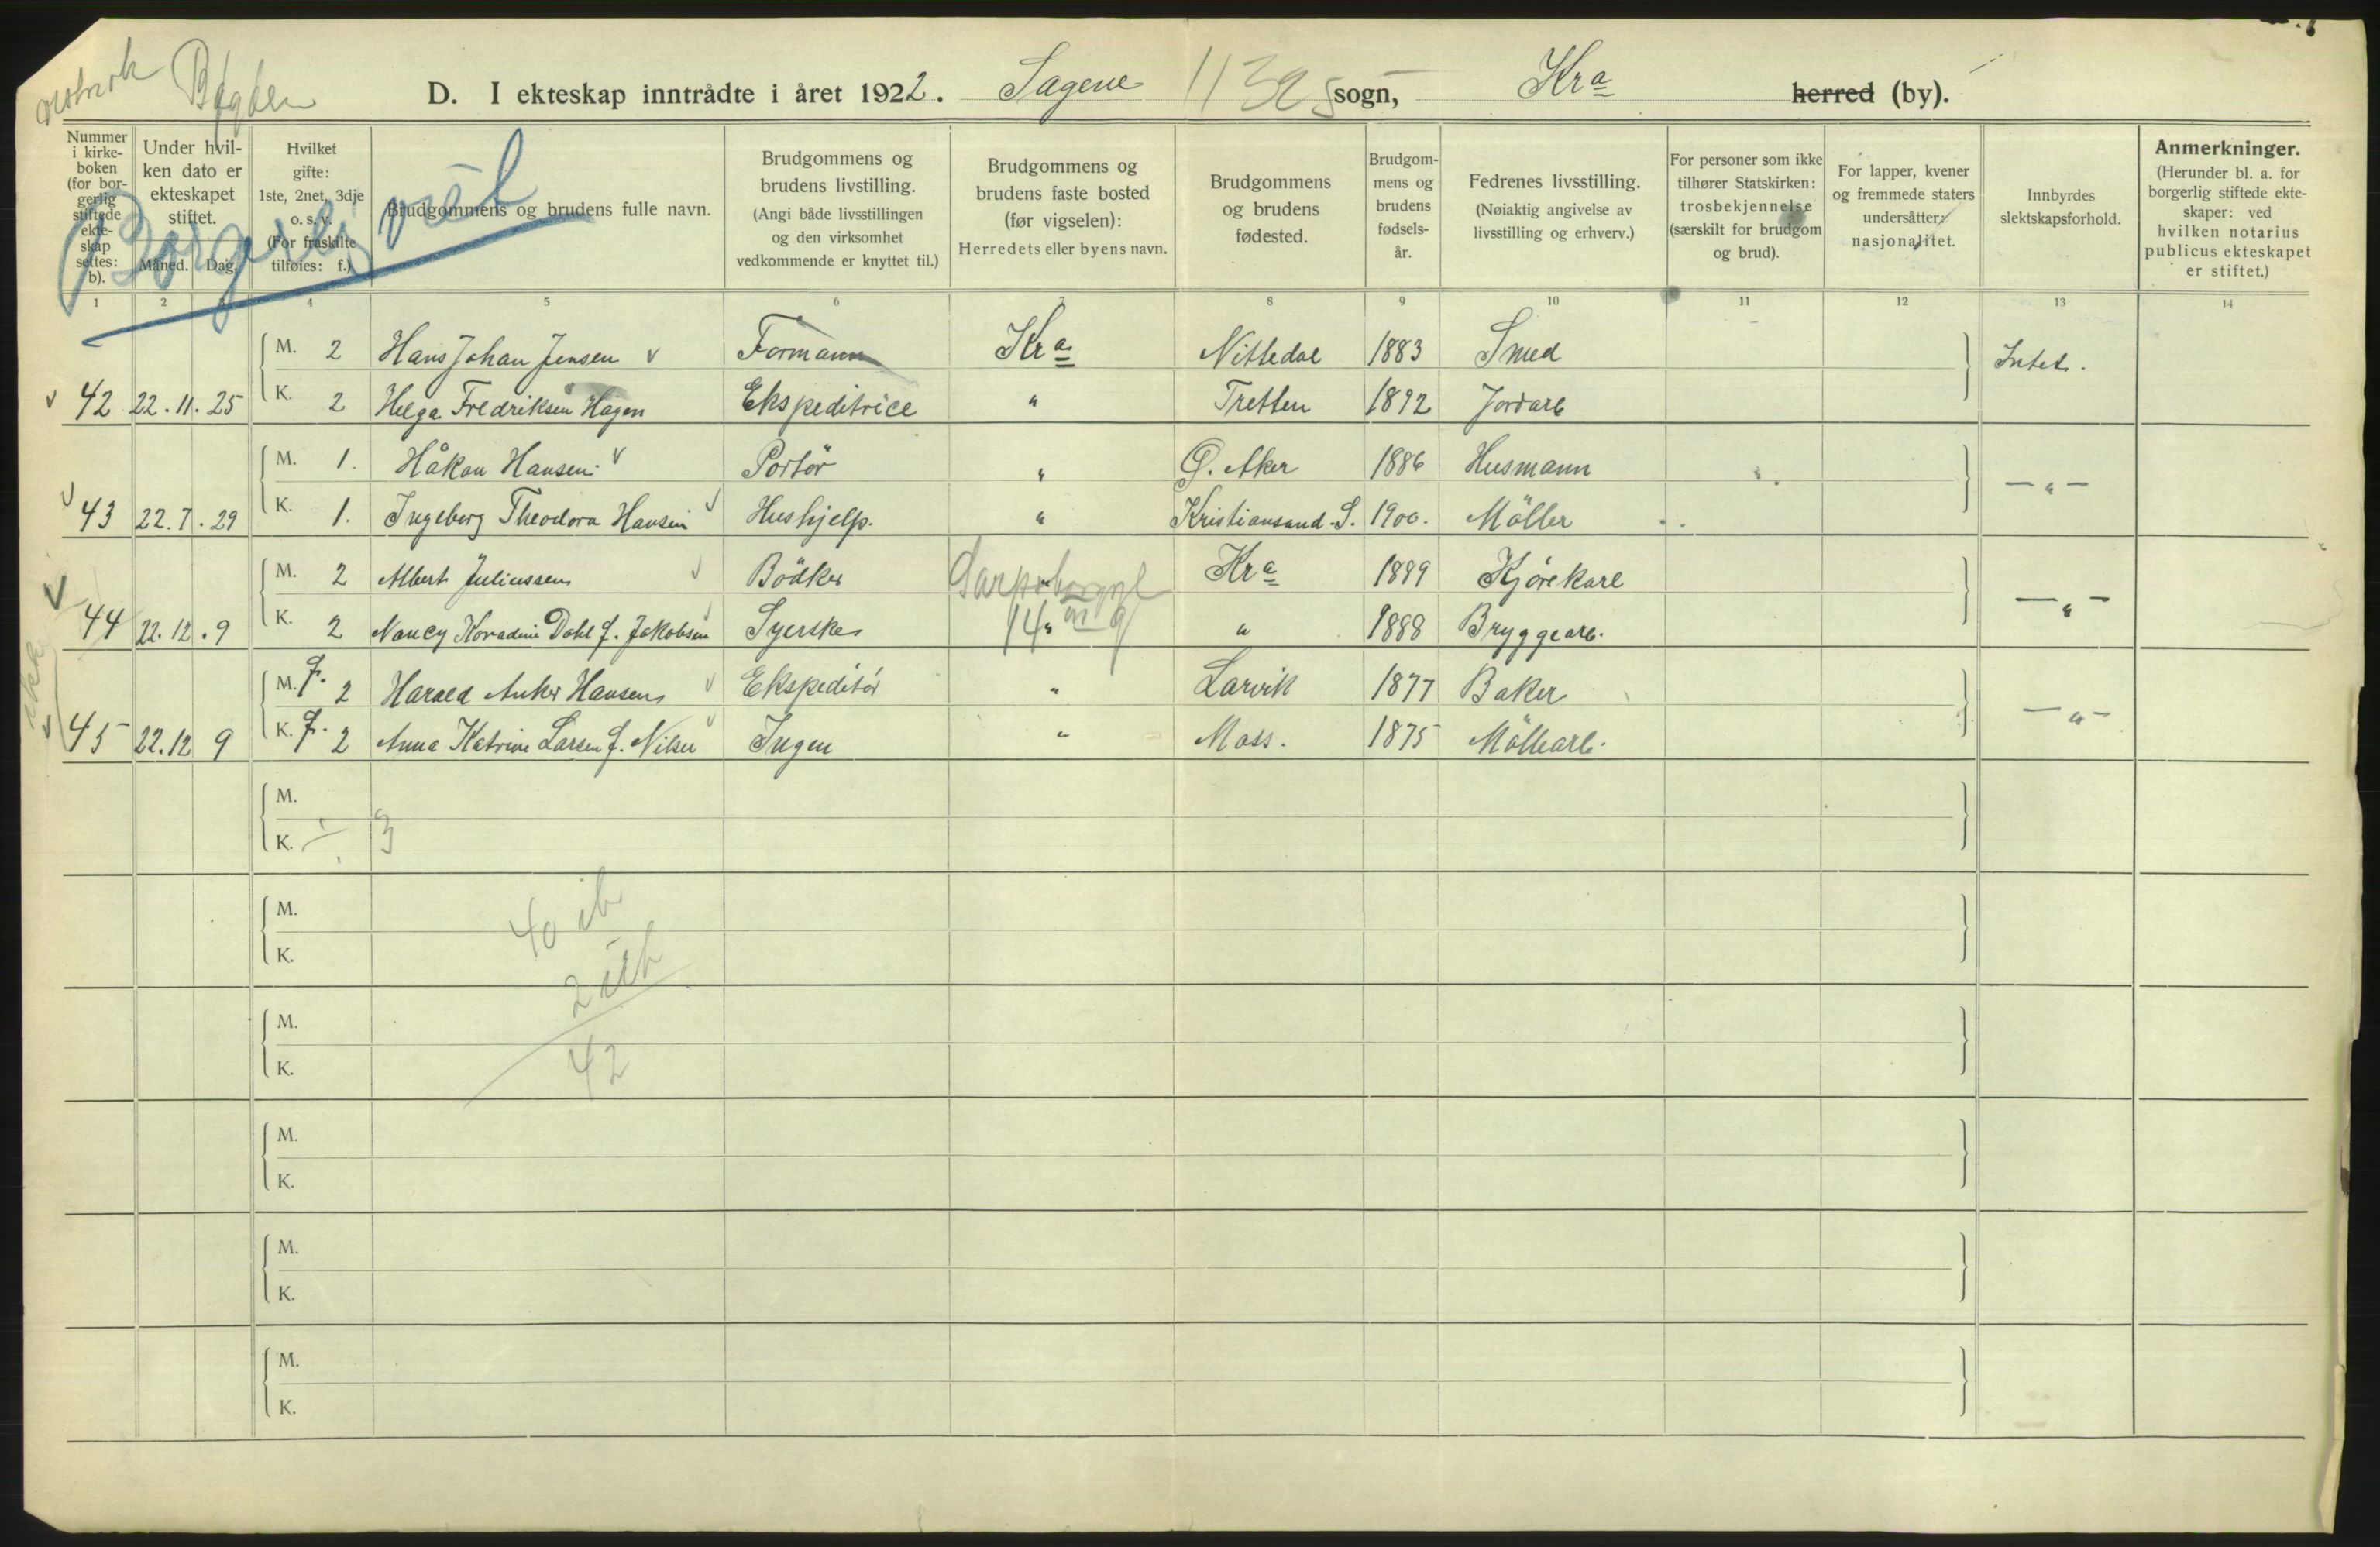 notrok Bygden
D. I ekteskap inntrådte i året 1922. Sagene sogn, Kra herred (by).
Borgerlig viet
Nummer i kirkeboken (for borgerlig stiftede ekteskap settes: b).
Under hvilken dato er ekteskapet stiftet.
Måned. Dag.
Hvilket gifte: 1ste, 2net, 3dje o. s. v. (For fraskilte tilføies: f.)
Brudgommens og brudens fulle navn.
Brudgommens og brudens livstilling. (Angi både livsstillingen og den virksomhet vedkommende er knyttet til.)
Brudgommens og brudens faste bosted (før vigselen): Herredets eller byens navn.
Brudgommens og brudens fødested.
Brudgommens og brudens fødselsår.
Fedrenes livsstilling. (Nøiaktig angivelse av livsstilling og erhverv.)
For personer som ikke tilhører Statskirken: trosbekjennelse (særskilt for brudgom og brud).
For lapper, kvener og fremmede staters undersåtter: nasjonalitet.
Innbyrdes slektskapsforhold.
Anmerkninger. (Herunder bl. a. for borgerlig stiftede ekteskaper: ved hvilken notarius publicus ekteskapet er stiftet.)
1 2 3 4 5 6 7 8 9 10 11 12 13 14
M. 2 Hans Johan Jensen Formann Kra Nittedal 1883 Smed Intet.
42 22.11.25 K. 2 Helga Fredriksen Hagen Ekspeditrice " Tretten 1892 Jordarb
M. 1. Håkan Hansen Portör " Ø. Aker 1886 Husmann — " —
43 22.7.29 K. 1. Ingeborg Theodora Hansen Hushjelp. " Kristiansand. S. 1900. Möller
M. 2 Albert Juliussen Bödker " Kra 1899 Kjörekarl — " —
44 22.12.9 K. 2 Nancy Koradine Dahl f. Jakobsen Syerske " " 1888 Bryggearb.
M. f. 2 Harald Anker Hansen Ekspeditör " Larvik 1877 Baker — " —
45 22.12 9 K. f. 2 Anna Katrine Larsen f. Nilsen Ingen " Moss. 1875 Möllearb.
M.
K. 3
M. 40 ib
K. 2 ub
M.
K. 42
M.
K.
M.
K.
M.
K.